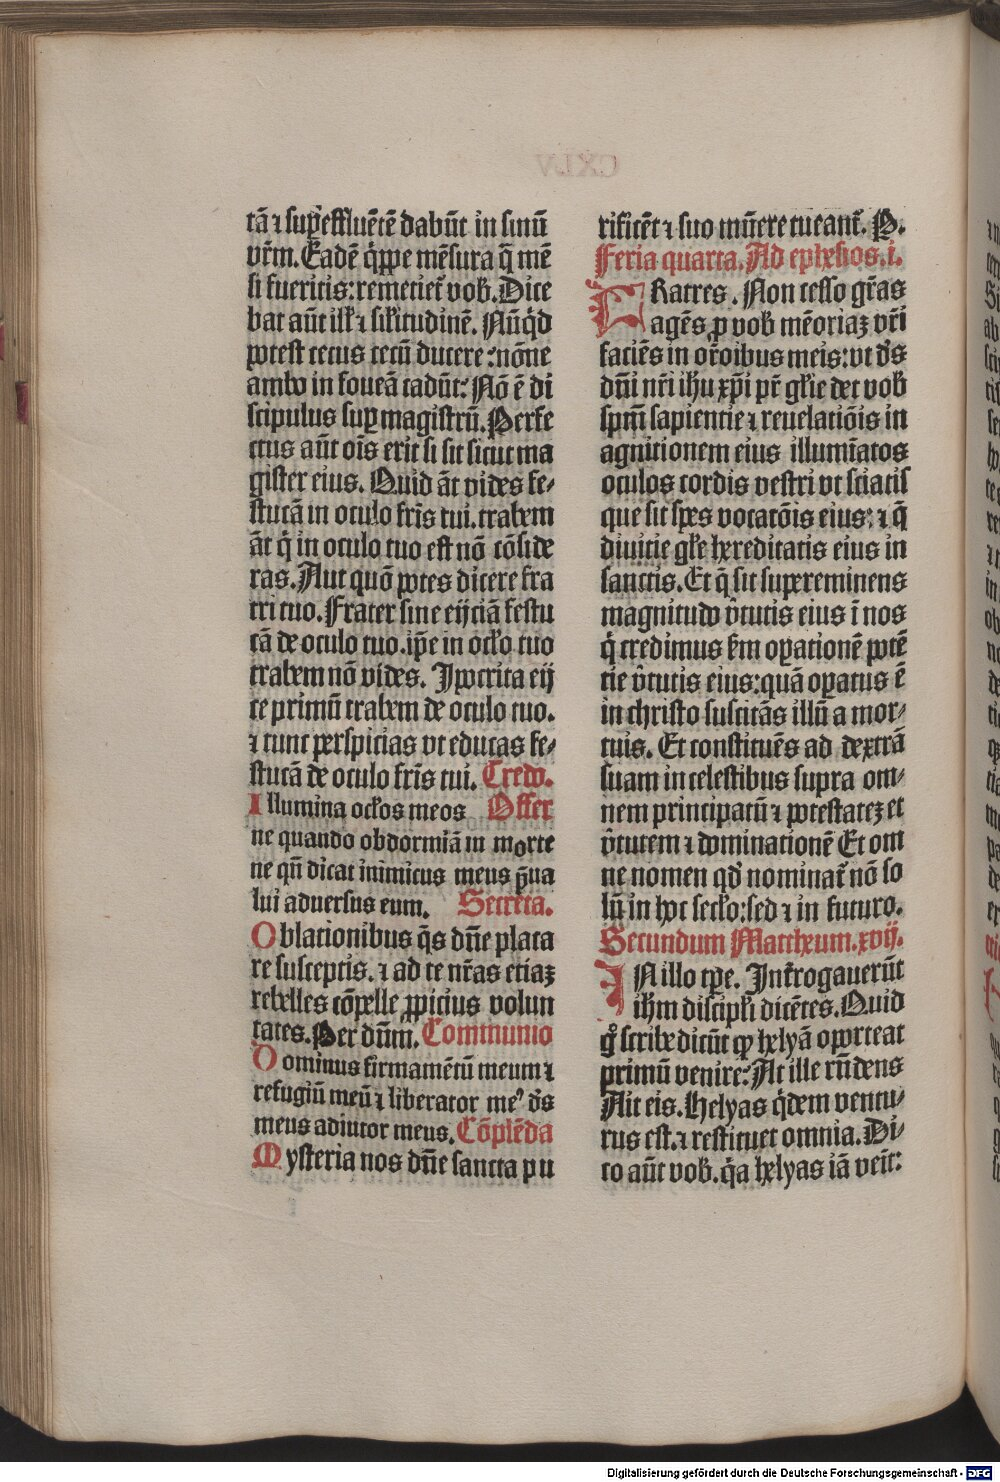 tā ⁊ suꝑeffluētē dabūt in sinū
vr̄m. Eadē q̄ppe mēsura q̄ mē
si fueritis: remetiet᷑ vob̵. Dice
bat aūt ill̵ ⁊ sil̵itudinē. Nūq̄d
potest cecus cecū ducere: nōne
ambo in foueā cadūt: Nō ē di
scipulus suꝑ magistrū. Perfe
ctus aūt oīs erit si sit sicut ma
gister eius. Quid āt vides fe⸗
stucā in oculo fr̄is tui. trabem
āt q̄ in oculo tuo est nō cōside
ras. Aut quō potes dicere fra
tri tuo. Frater sine eijciā festu
cā de oculo tuo. ip̄e in ocl̵o tuo
trabem nō vides. Ipocrita eij
ce primū trabem de oculo tuo.
⁊ tunc perspicias vt educas fe⸗
stucā de oculo fr̄is tui. Credo.
Illumina ocl̵os meos Offer
ne quando obdormiā in morte
ne qn̄ dicat inimicus meus p̄ua
lui aduersus eum. Secreta.
Oblationibus q̄s dn̄e placa
re susceptis. ⁊ ad te nr̄as etiaꝫ
rebelles cōpelle ꝓpicius volun
tates. Per dn̄m. Communio
Dominus firmamētū meum ⁊
refugiū meū ⁊ liberator meꝰ d̄s
meus adiutor meus. Cōplēda
Mysteria nos dn̄e sancta pu
rificēt ⁊ suo mūere tueant᷑. P.
Feria quarta. Ad ephesios. i.
FRatres. Non cesso gr̄as
agēs ꝓ vob̵ mēoriaꝫ vr̄i
faciēs in or̄oibus meis: vt d̄s
dn̄i nr̄i ihu xp̄i pr̄ gl̵ie det vob̵
spm̄ sapientie ⁊ reuelatiōis in
agnitionem eius illumīatos
oculos cordis vestri vt sciatis
que sit spes vocatōis eius: ⁊ q̄
diuitie gl̵e hereditatis eius in
sanctis. Et q̄ sit supereminens
magnitudo v̄tutis eius ī nos
q̄ credimus s̄m oꝑationē potē
tie v̄tutis eius: quā oꝑatus ē
in christo suscitās illū a mor⸗
tuis. Et constituēs ad dextrā
suam in celestibus supra om⸗
nem principatū ⁊ potestateꝫ et
v̄tutem ⁊ dominationē Et om
ne nomen qd̄ nominat᷑ nō so
lū in hoc secl̵o: sed ⁊ in futuro.
Secundum Mattheum. xvij.
IN illo tp̄e. Int̄rogauerūt
ihm̄ discipl̵i dicētes. Quid
gͦ scribe dicūt ꝙ helyā oporteat
primū venire: At ille rn̄dens
Ait eis. Helyas q̄dem ventu⸗
rus est. ⁊ restituet omnia. Di⸗
co aūt vob̵. q̄a helyas iā veīt:
Digitalisierung gefördert durch die Deutsche Forschungsgemeinschaft - DFG